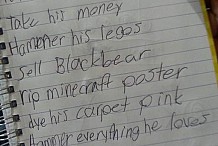 Take his money
Hammer his legos
Sell Blackbear
rip minecraft poster
dye his carpet pink
Hammer everything he loves